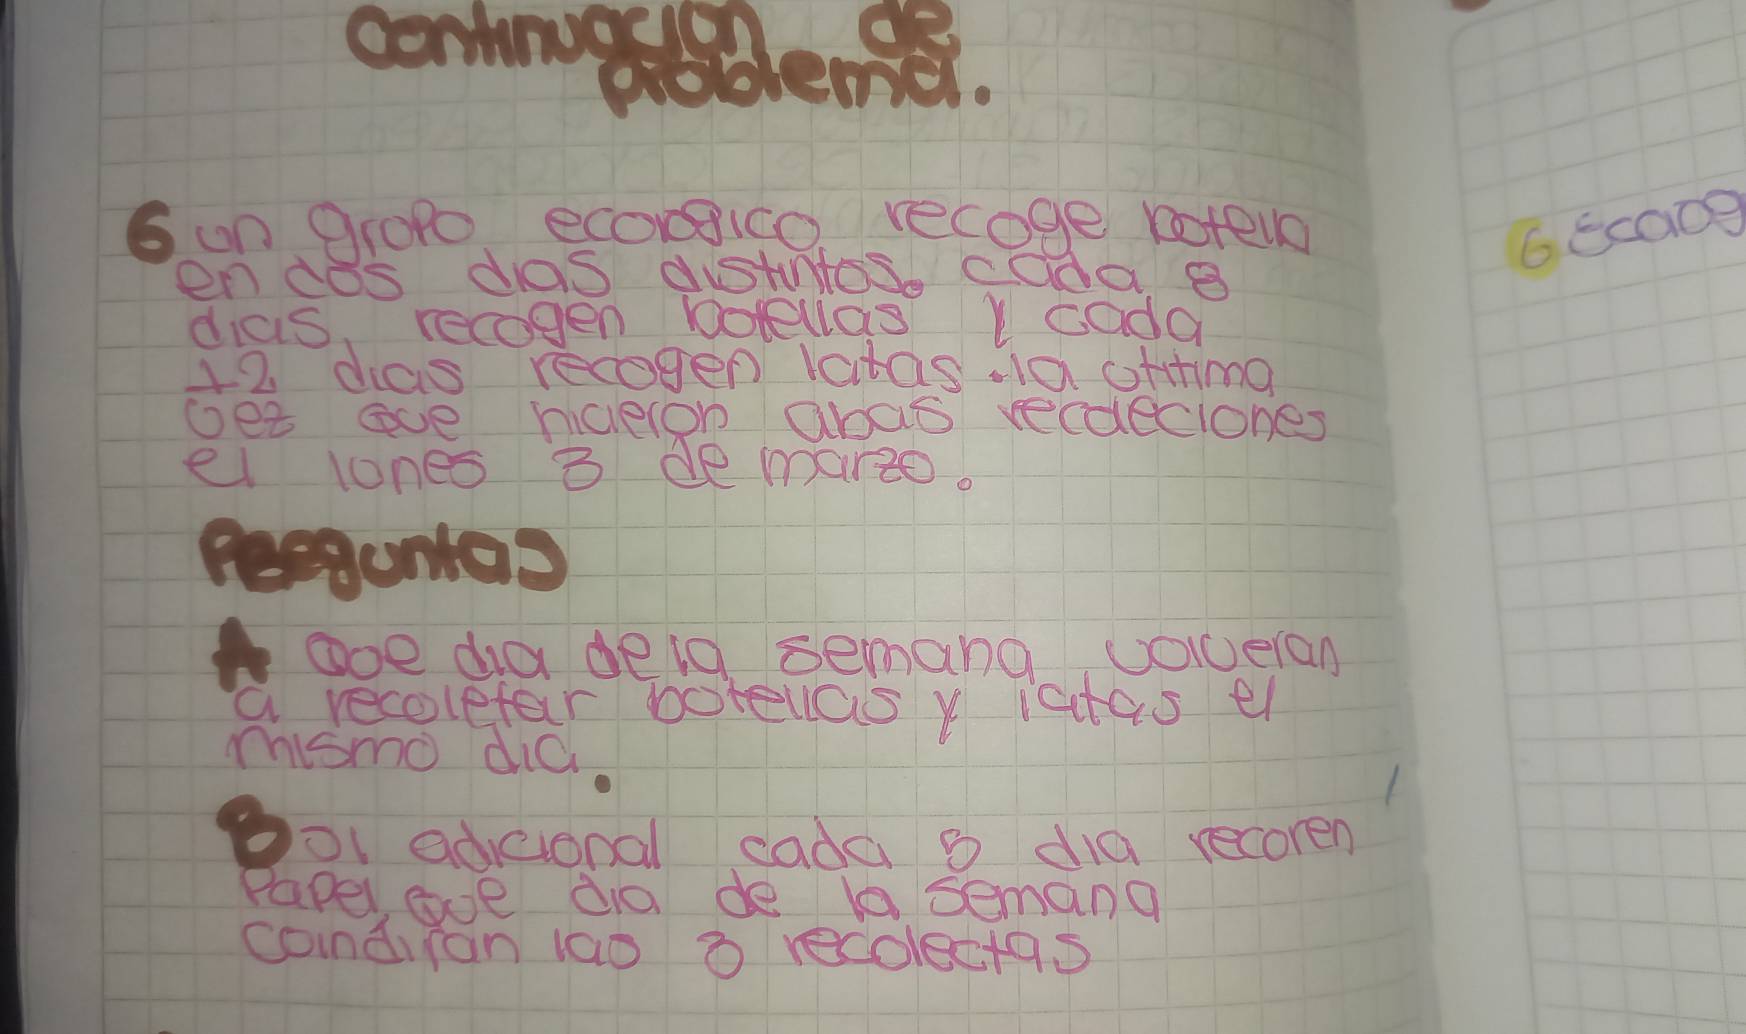 continuación de
problema.
6 un gropo ecorogico recoge botella
en dos dias distintos. cada 8
dias, recogen botellas y cada
12 dias recogen latas. la oltima
vez que hicieron abas recdeciones
el lones 3 de marzo.
Peeguntas
A que dia dela semana volveran
a recoletar botellas y latas el
mismo dia.
B oi adicional cada 5 dia recoren
Papel, que dia de la semana
coindiran las 3 recolectas
6